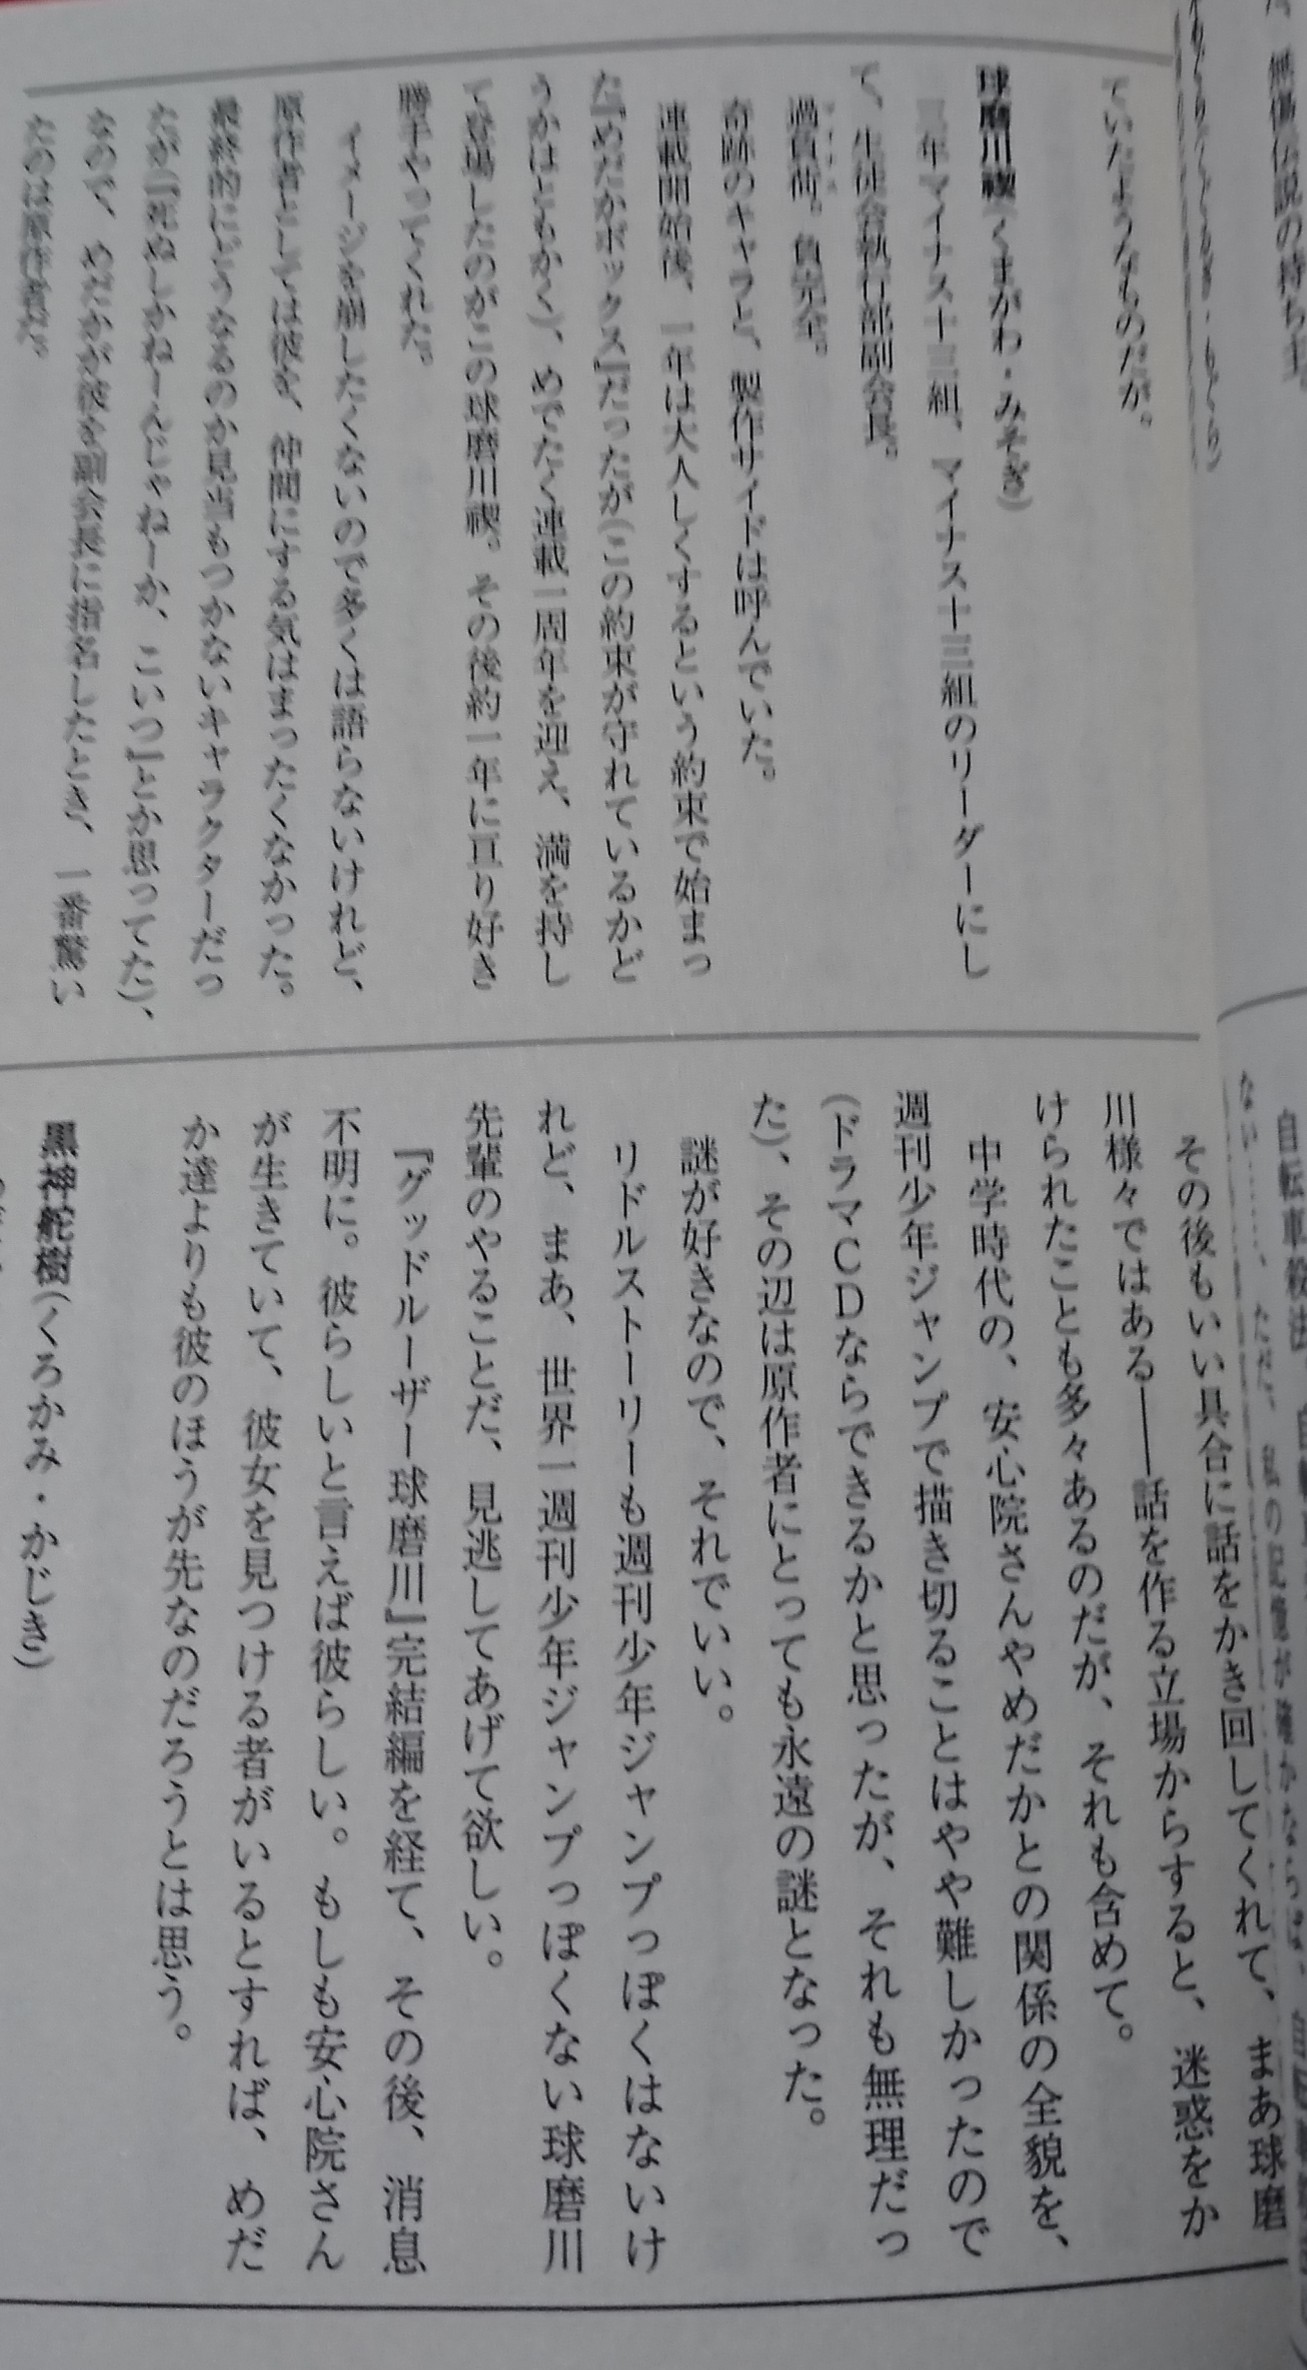 ていたようなものだが。
球磨川禊(くまがわ・みそぎ)
三年マイナス十三組、マイナス十三組のリーダーにし
て、生徒会執行部副会長。
過負荷。負完全。
奇跡のキャラと、製作サイドは呼んでいた。
連載開始後、一年は大人しくするという約束で始まっ
た『めだかボックス』だったが(この約束が守れているかど
うかはともかく)、めでたく連載一周年を迎え、満を持し
て登場したのがこの球磨川禊。その後約一年に亘り好き
勝手やってくれた。
イメージを崩したくないので多くは語らないけれど、
原作者としては彼を、仲間にする気はまったくなかった。
最終的にどうなるのか見当もつかないキャラクターだっ
たが(「死ぬしかねーんじゃねーか、こいつ」とか思ってた)、
なので、めだかが彼を副会長に指名したとき、一番驚い
たのは原作者だ。
その後もいい具合に話をかき回してくれて、まあ球磨
川様々ではある――話を作る立場からすると、迷惑をか
けられたことも多々あるのだが、それも含めて。
中学時代の、安心院さんやめだかとの関係の全貌を、
週刊少年ジャンプで描き切ることはやや難しかったので
(ドラマCDならできるかと思ったが、それも無理だっ
た)、その辺は原作者にとっても永遠の謎となった。
謎が好きなので、それでいい。
リドルストーリーも週刊少年ジャンプっぽくはないけ
れど、まあ、世界一週刊少年ジャンプっぽくない球磨川
先輩のやることだ、見逃してあげて欲しい。
『グッドルーザー球磨川』完結編を経て、その後、消息
不明に。彼らしいと言えば彼らしい。もしも安心院さん
が生きていて、彼女を見つける者がいるとすれば、めだ
か達よりも彼のほうが先なのだろうとは思う。
黒神舵樹(くろかみ・かじき)